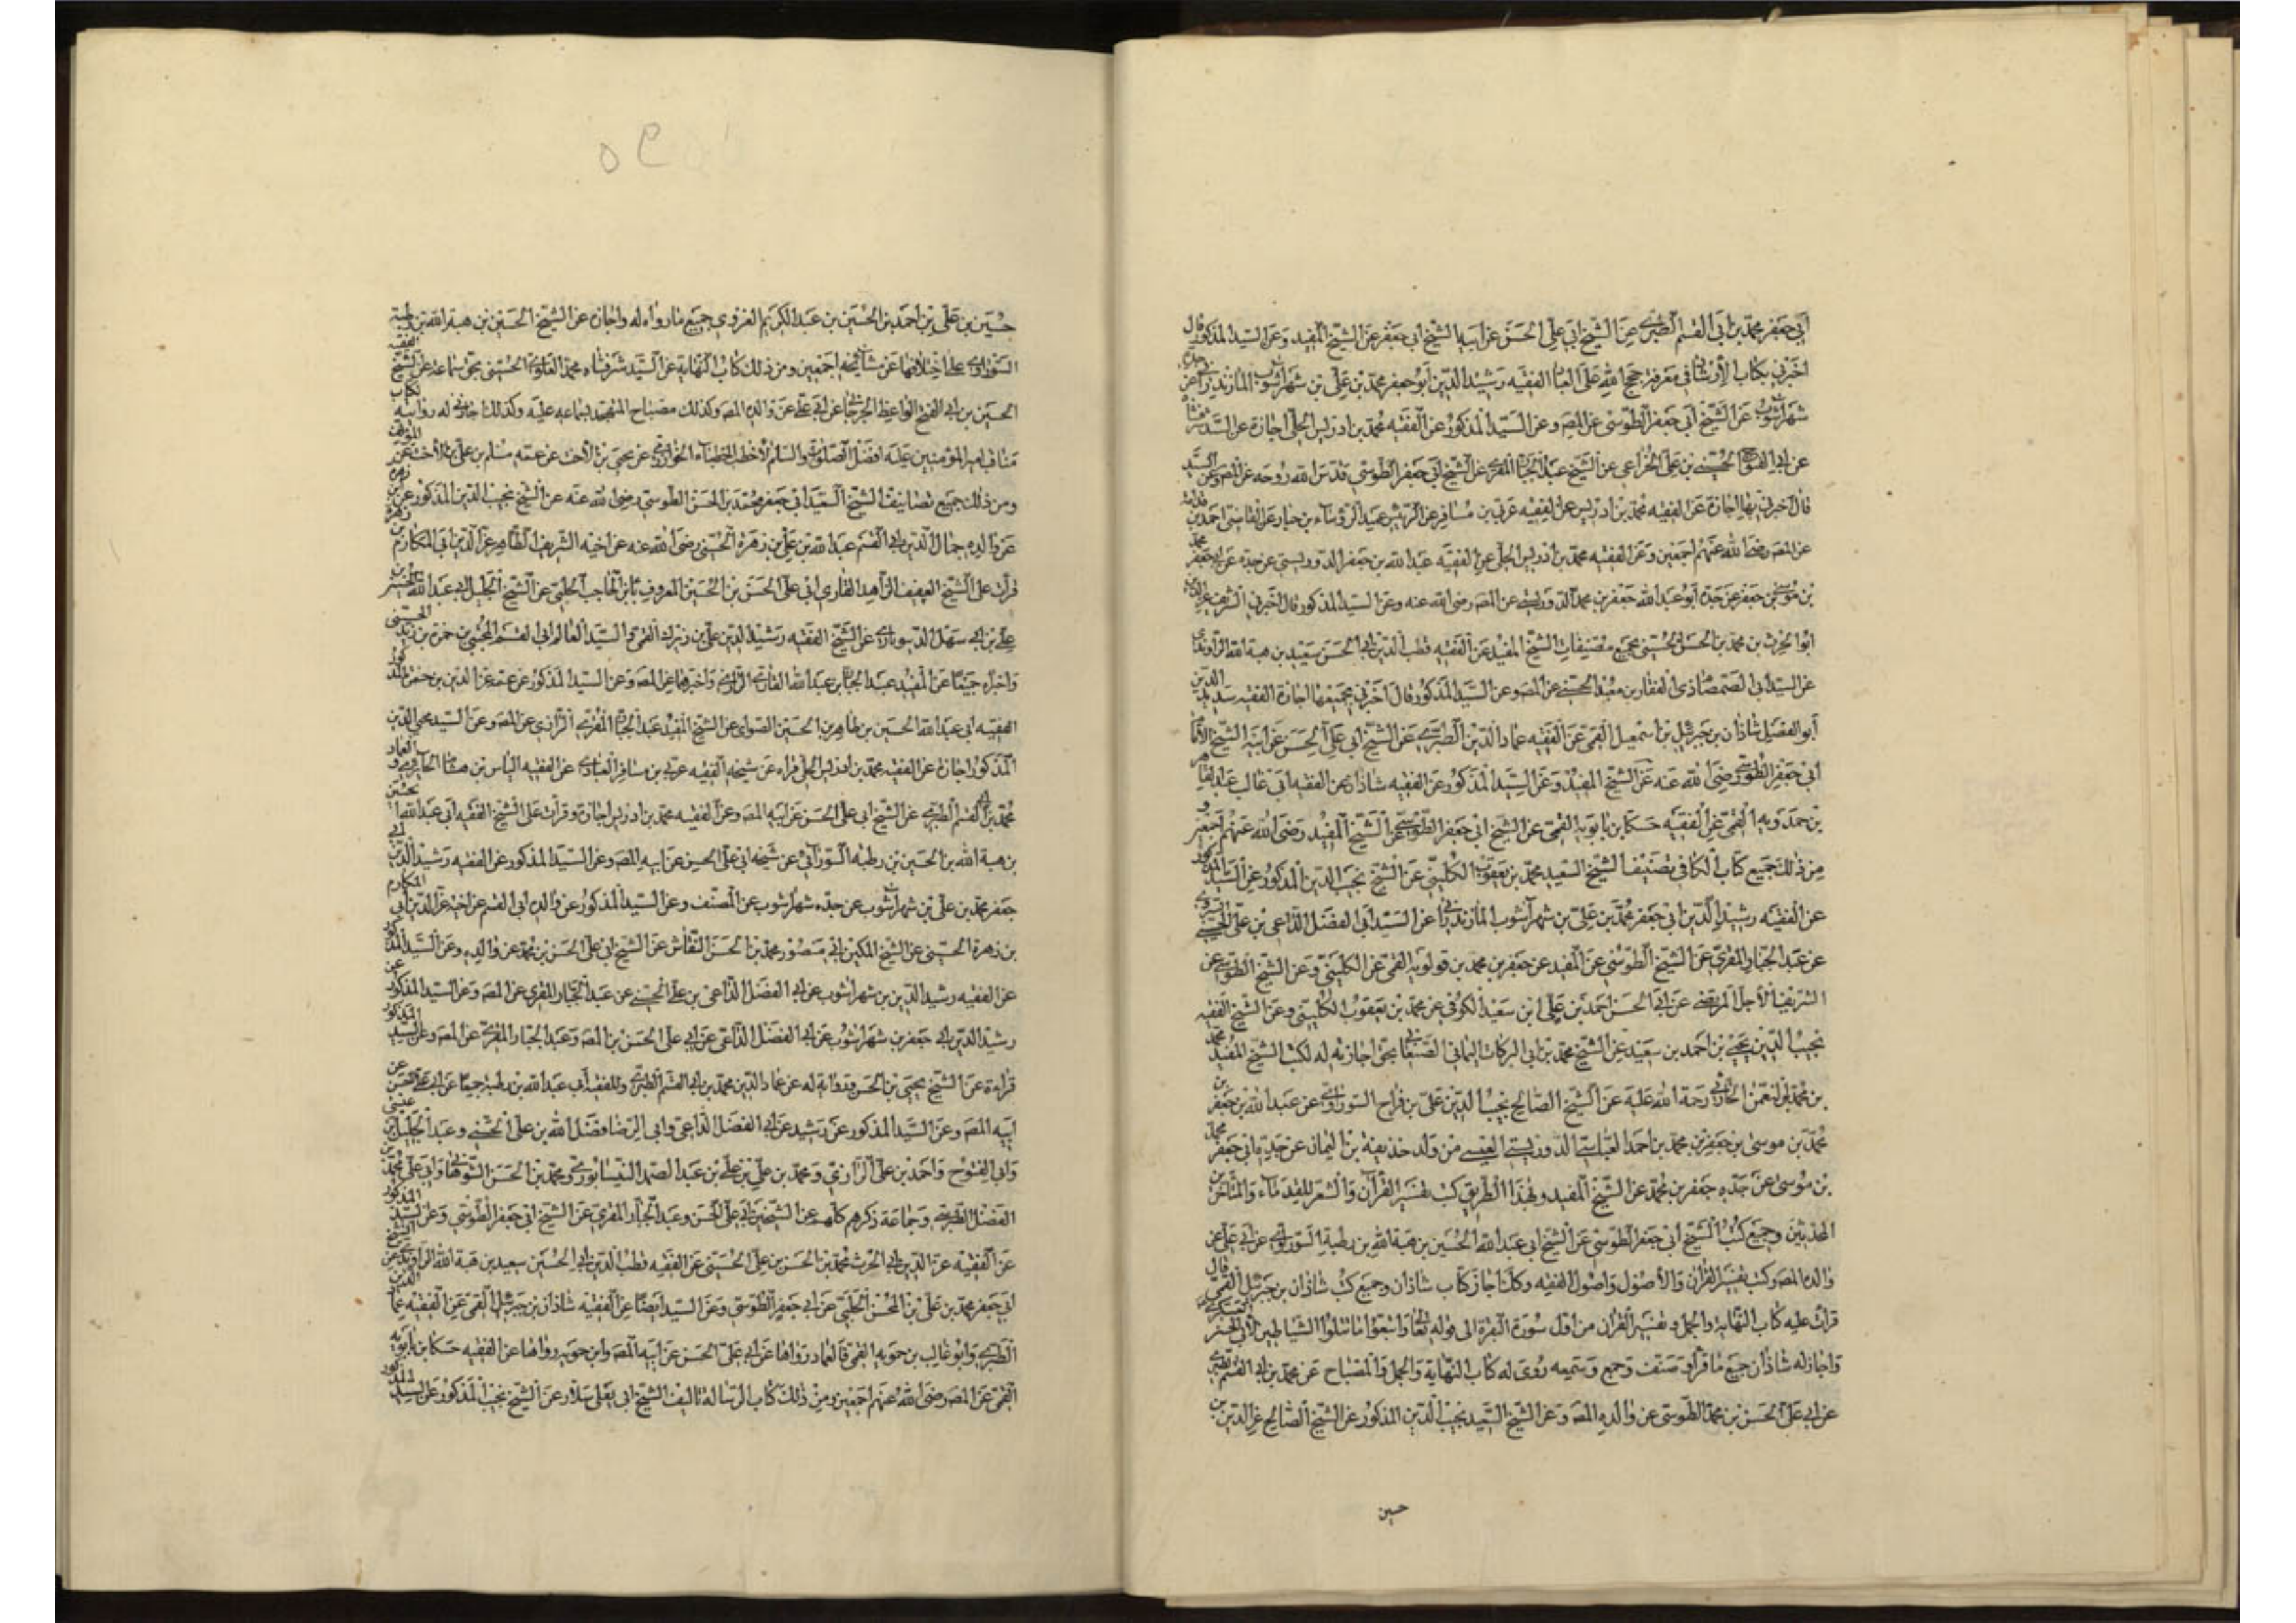 أبي جعفر محمد بن أبي القسم الطبري عن الشيخ أبي علي الحسن عن أبيه الشيخ أبي جعفر عن الشيخ المفيد وعن السيد المذكور قال
أخبرني بكتاب الإرشاد في معرفة حجج الله على العباد الفقيه رشيد الدين أبو جعفر محمد بن علي بن شهرآشوب المازندراني عن جده
شهرآشوب عن الشيخ أبي جعفر الطوسي عن المص وعن السيد المذكور عن الفقيه محمد بن ادريس الحلي اجازة عن السيد شرفشاه
عن أبي الفتوح الحسين بن علي الخزاعي عن الشيخ عبد الجبار المقري عن الشيخ أبي جعفر الطوسي قدس الله روحه عن المص وعن السيد
قال أخبرني بها اجازة عن الفقيه محمد بن ادريس عن الفقيه عربي بن مسافر عن الرئيس عبد الرؤساء بن حيار عن القاضي احمد بن قدامة
عن المص رضي الله عنهم أجمعين وعن الفقيه محمد بن ادريس الحلي عن الفقيه عبد الله بن جعفر الدوريستي عن جده عن أبي جعفر محمد
بن موسى بن جعفر عن جده أبو عبد الله جعفر بن محمد الدوريستي عن المص رضي الله عنه وعن السيد المذكور قال أخبرني الشريف عز الدين
أبو الحرث بن محمد بن الحسن الحسيني بجميع مصنفات الشيخ المفيد عن الفقيه قطب الدين أبي الحسن سعيد بن هبة الله الراوندي
عن السيد أبي الصمصام ذي الفقار بن معبد الحسني عن المص وعن السيد المذكور قال أخبرني بجميعها اجازة الفقيه سديد الدين
أبو الفضل شاذان بن جبرئيل بن اسمعيل القمي عن الفقيه عماد الدين الطبري عن الشيخ أبي علي الحسن عن أبيه الشيخ الامام
أبي جعفر الطوسي رضي الله عنه عن الشيخ المفيد وعن السيد المذكور عن الفقيه شاذان عن الفقيه أبي غالب عبد القاهر
بن حمدويه القمي عن الفقيه حسكا بن بابويه القمي عن الشيخ أبي جعفر الطوسي عن الشيخ المفيد رضي الله عنهم أجمعين و
من ذلك جميع كتاب الكافي تصنيف الشيخ السعيد محمد بن يعقوب الكليني عن الشيخ نجيب الدين المذكور عن السيد المذكور
عن الفقيه رشيد الدين أبي جعفر محمد بن علي بن شهرآشوب المازندراني عن السيد أبي الفضل الداعي بن علي الحسيني السروي
عن عبد الجبار المقري عن الشيخ الطوسي عن المفيد عن جعفر بن محمد بن قولويه القمي عن الكليني وعن الشيخ الطوسي عن
الشريف الأجل المرتضى عن أبي الحسن احمد بن علي ابن سعيد الكوفي عن محمد بن يعقوب الكليني وعن الشيخ الفقيه
نجيب الدين يحيى بن احمد بن سعيد عن الشيخ محمد بن أبي البركات اليماني الصنعاني بحق اجازته له لكتب الشيخ المفيد محمد
بن محمد بن النعمن الحارثي رحمة الله عليه عن الشيخ الصالح نجيب الدين علي بن فراج السوراوي عن عبد الله بن جعفر بن
محمد بن موسى بن جعفر بن محمد بن احمد العباسي الدوريستي العبسي من ولد حذيفة بن اليمان عن جده أبي جعفر محمد
بن موسى عن جده جعفر بن محمد عن الشيخ المفيد وبهذا الطريق كتب تفسير القرآن والشعر للقدماء والمتاخرين
المحدثين وجميع كتب الشيخ أبي جعفر الطوسي عن الشيخ أبي عبد الله الحسين بن هبة الله بن رطبة السوراوي عن أبي علي عن
والده المص وكتب تفسير القرآن والأصول وأصول الفقه وكلما أجاز كتاب شاذان وجميع كتب شاذان بن جبرئيل القمي قال
قرأت عليه كتاب النهاية والجمل وتفسير القرآن من أول سورة البقرة الى قوله تعالى واتبعوا ما تتلوا الشياطين
واجاز له شاذان جميع ما قرأ وصنف وجمع وسمعه روى له كتاب النهاية والجمل والمصباح عن محمد بن أبي القسم الطبري
عن أبي علي الحسن بن محمد الطوسي عن والده المص وعن الشيخ السعيد نجيب الدين المذكور عن الشيخ الصالح عز الدين بن
حسين
٥٩
حسين بن علي بن أحمد بن الحسين بن عبد الكريم الغروي جميع ما رواه له واجازه عن الشيخ الحسين بن هبة الله بن رطبة
السوراوي على اختلافها عن مشايخه اجمعين ومن ذلك كتاب النهاية عن السيد شرفشاه محمد العلوي الحسيني بحق سماعه عن الشيخ الفقيه
الحسين بن أبي الفتح الواعظ الجرجاني عن أبي علي عن والده المص وكذلك مصباح المتهجد بسماعه عليه وكذلك اجازني له روايته لكتاب
مناقب أمير المؤمنين عليه أفضل الصلوات والسلام لأخطب الخطباء الخوارزمي عن يحيى بن الأخت عن عمه مسلم بن علي بن الأخت عن المؤلف
ومن ذلك جميع تصانيف الشيخ السعيد أبي جعفر محمد بن الحسن الطوسي رضي الله عنه عن الشيخ نجيب الدين المذكور عن ابن زهرة
عن والده جمال الدين أبي القسم عبد الله بن علي بن زهرة الحسيني رضي الله عنه عن أخيه الشريف الطاهر عز الدين أبي المكارم بن زهرة
قرأت على الشيخ العفيف الزاهد القاري أبي علي الحسن بن الحسين المعروف بابن الحاجب الحلبي عن الشيخ الجليل أبي عبد الله الحسين بن
علي بن أبي سهل الدسوناري عن الشيخ الفقيه رشيد الدين علي بن زيرك القمي والسيد العالم أبي القسم المجتبى بن حمزة بن زيد الحسيني
واخبراه جميعا عن المفيد عبد الجبار بن عبد الله القاري الرازي واخبرهما عن المص وعن السيد المذكور عن عمه عز الدين بن حمزة المذكور
الفقيه أبي عبد الله الحسين بن طاهر بن الحسين الصواي عن الشيخ المفيد عبد الجبار المقري الرازي عن المص وعن السيد محيي الدين
المذكور اجازة عن الفقيه محمد بن ادريس الحلي قراءة عن شيخه الفقيه عربي بن مسافر العبادي عن الفقيه الياس بن هشام الحايري و العماد
محمد بن أبي القسم الطبري عن الشيخ أبي علي الحسن عن أبيه المص وعن الفقيه محمد بن ادريس اجازة وقرأت على الشيخ الفقيه أبي عبد الله الحسين
بن هبة الله بن الحسين بن رطبة السوراني عن شيخه أبي علي الحسن عن أبيه المص وعن السيد المذكور عن الفقيه رشيد الدين أبي
جعفر محمد بن علي بن شهرآشوب عن جده شهرآشوب عن المصنف وعن السيد المذكور عن والده أبي القسم عن أخيه عز الدين أبي المكارم
بن زهرة الحسيني عن الشيخ المكين أبي منصور محمد بن الحسن النقاش عن الشيخ أبي علي الحسن بن محمد عن والده وعن السيد المذكور
عن الفقيه رشيد الدين بن شهرآشوب عن أبي الفضل الداعي بن علي الحسيني عن عبد الجبار المقري عن المص وعن السيد المذكور عن
رشيد الدين أبي جعفر بن شهرآشوب عن أبي الفضل الداعي عن أبي علي الحسن بن المص وعبد الجبار المقري عن المص وعن السيد المذكور
قراءة عن الشيخ يحيى بن الحسن ورواية له عن عماد الدين محمد بن أبي القسم الطبري وللفقيه أبي عبد الله بن رطبة جميعا عن أبي علي الحسن عن
أبيه المص وعن السيد المذكور عن رشيد عن أبي الفضل الداعي وأبي الرضا فضل الله بن علي الحسني وعبد الجليل بن عيسى
وأبي الفتوح واحمد بن علي الرازي ومحمد بن علي بن علي بن عبد الصمد النيسابوري ومحمد بن الحسن الشوهاني وأبي علي محمد بن
الفضل الطبرسي وجماعة ذكرهم كلهم عن الشيخين أبي علي الحسن وعبد الجبار المقري عن الشيخ أبي جعفر الطوسي وعن السيد المذكور
عن الفقيه عز الدين أبي الحرث محمد بن الحسن بن علي الحسيني عن الفقيه قطب الدين أبي الحسين سعيد بن هبة الله الراوندي عن الشيخ
أبي جعفر محمد بن علي بن المحسن الحلبي عن أبي جعفر الطوسي وعن السيد أيضا عن الفقيه شاذان بن جبرئيل القمي عن الفقيه عماد الدين
الطبري وأبو غالب بن حمويه القمي قالعماد رواها عن أبي علي الحسن عن أبيه المص وابن حمويه رواها عن الفقيه حسكا بن بابويه
القمي عن المص رضي الله عنهم اجمعين ومن ذلك كتاب الرسالة تاليف الشيخ أبي يعلى سلار عن الشيخ نجيب المذكور عن السيد المذكور